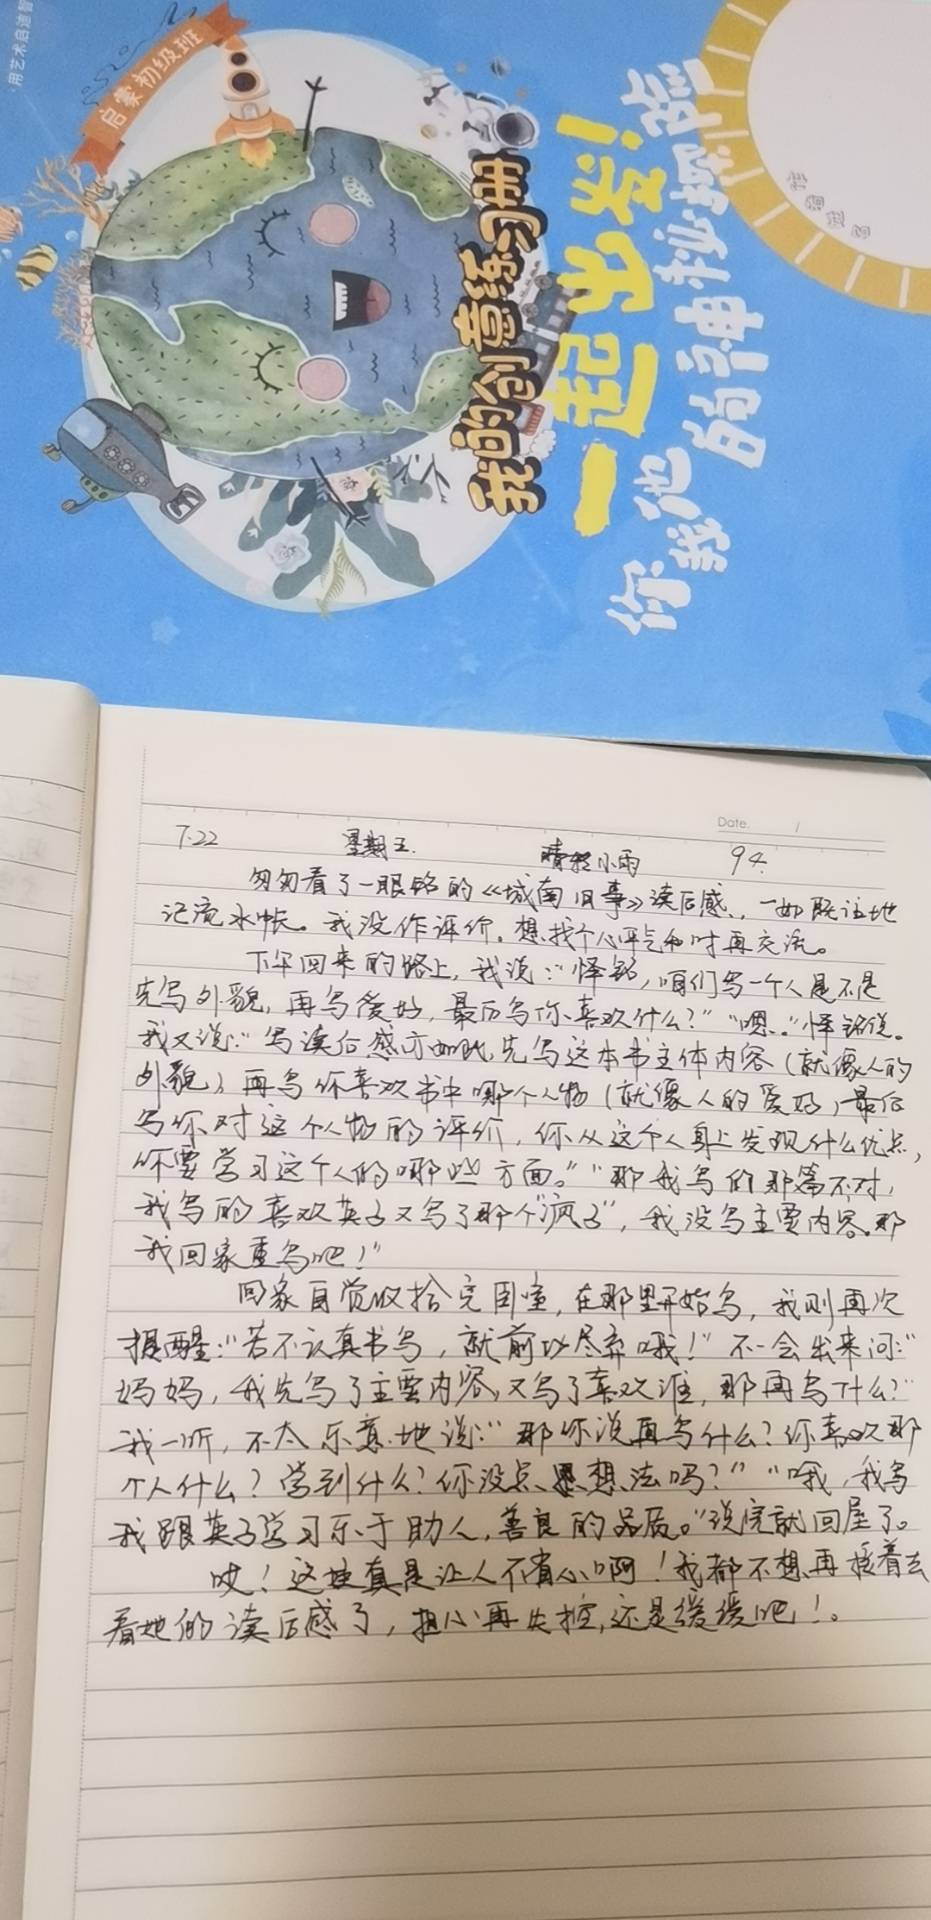 用艺术启迪智
启蒙初级班
我的创意练习册
一起出发!
你我他
的神秘探险
7.22 星期五. 晴转小雨 94.
匆匆看了一眼铭的《城南旧事》读后感,一如既往地
记流水帐。我没作评价,想找个心平气和时再交流。
下午回来的路上,我说:“怿铭,咱们写一个人是不是
先写外貌,再写爱好,最后写你喜欢什么?”“嗯。”怿铭说。
我又说:“写读后感亦如此,先写这本书主体内容(就像人的
外貌)再写你喜欢书中哪个人物(就像人的爱好)最后
写你对这个人物的评价,你从这个人身上发现什么优点,
你要学习这个人的哪些方面。”“那我写的那篇不对,
我写的喜欢英子又写了那个“疯子”,我没写主要内容。那
我回家重写吧!”
回家自觉收拾完卧室,在那里开始写,我则再次
提醒:“若不认真书写,就前功尽弃哦!”不一会出来问:“
妈妈,我先写了主要内容,又写了喜欢谁,那再写什么?”
我一听,不太乐意地说:“那你说再写什么?你喜欢那
个人什么?学到什么?你没点思想、想法吗?”“哦,我写
我跟英子学习乐于助人,善良的品质。”说完就回屋了。
哎!这娃真是让人不省心啊!我都不想再接着去
看她的读后感了,担心再失控,还是缓缓吧!。
Date.